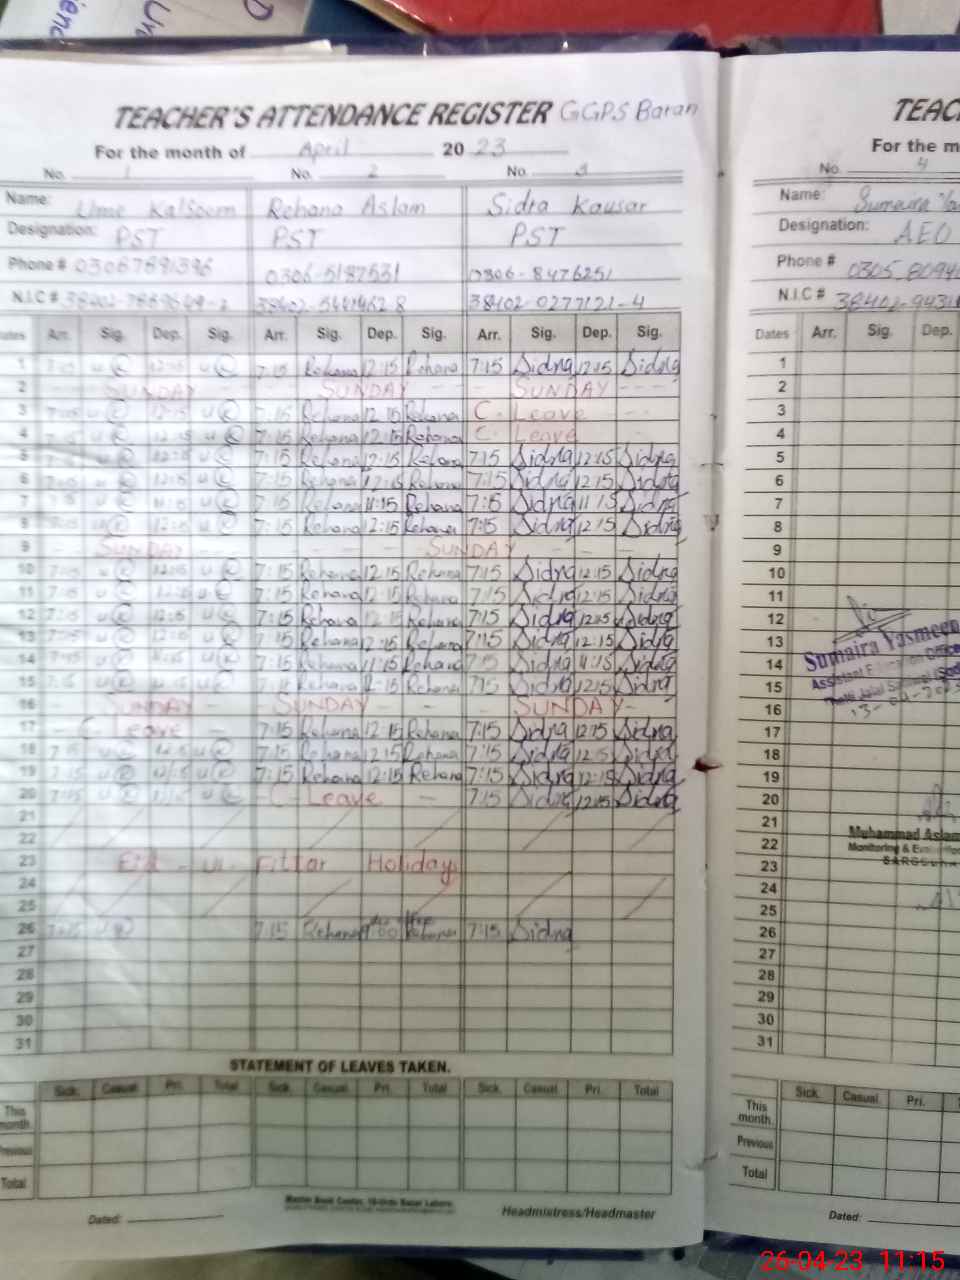 TEACHER'S ATTENDANCE REGISTER GGPS Baran
For the month of April 2023
No. 1 No. 2 No. 3
Name: Ume Kalsoom Rehana Aslam Sidra Kausar
Designation: PST PST PST
Phone # 03067691396 0306-5187531 0306-8476251
N.I.C # 38402-0277121-4
Dates Arr. Sig. Dep. Sig. Arr. Sig. Dep. Sig. Arr. Sig. Dep. Sig.
1 7:15 12:15 7:15 Rehana 12:15 Rehana 7:15 Sidra 12:15 Sidra
2 SUNDAY SUNDAY SUNDAY
3 7:15 12:15 7:15 Rehana 12:15 Rehana C. Leave
4 7:15 12:15 7:15 Rehana 12:15 Rehana C. Leave
5 12:15 7:15 Rehana 12:15 Rehana 7:15 Sidra 12:15 Sidra
6 12:15 7:15 Rehana 12:15 Rehana 7:15 Sidra 12:15 Sidra
7 11:15 7:15 Rehana 11:15 Rehana 7:15 Sidra 11:15 Sidra
8 7:15 12:15 7:15 Rehana 12:15 Rehana 7:15 Sidra 12:15 Sidra
9 SUNDAY SUNDAY
10 7:15 12:15 7:15 Rehana 12:15 Rehana 7:15 Sidra 12:15 Sidra
11 7:15 12:15 7:15 Rehana 12:15 Rehana 7:15 Sidra 12:15 Sidra
12 7:15 12:15 7:15 Rehana 12:15 Rehana 7:15 Sidra 12:15 Sidra
13 7:15 12:15 7:15 Rehana 12:15 Rehana 7:15 Sidra 12:15 Sidra
14 7:15 11:15 7:15 Rehana 11:15 Rehana 7:15 Sidra 11:15 Sidra
15 7:15 7:15 Rehana 12:15 Rehana 7:15 Sidra 12:15 Sidra
16 SUNDAY SUNDAY SUNDAY
17 C. Leave 7:15 Rehana 12:15 Rehana 7:15 Sidra 12:15 Sidra
18 7:15 12:15 7:15 Rehana 12:15 Rehana 7:15 Sidra 12:15 Sidra
19 7:15 12:15 7:15 Rehana 12:15 Rehana 7:15 Sidra 12:15 Sidra
20 7:15 C. Leave 7:15 Sidra 12:15 Sidra
21
22
23 Eid - ul - Fittar Holidays
24
25
26 7:15 7:15 Rehana 9:00 Rehana 7:15 Sidra
27
28
29
30
31
STATEMENT OF LEAVES TAKEN.
Sick. Casual Pri. Total Sick. Casual Pri. Total Sick. Casual Pri. Total
This month.
Previous
Total
Dated:
Headmistress/Headmaster
TEAC
For the m
No. 4
Name: Sumaira
Designation: AEO
Phone # 0305
N.I.C # 38402-9431
Dates Arr. Sig. Dep.
1
2
3
4
5
6
7
8
9
10
11
12
13 Sumaira Yasmeen
14 Assistant Education Officer
15
16
17
18
19
20
21
22 Muhammad Aslam
23 Monitoring &
24
25
26
27
28
29
30
31
Sick. Casual Pri.
This month.
Previous
Total
Dated:
26-04-23 11:15